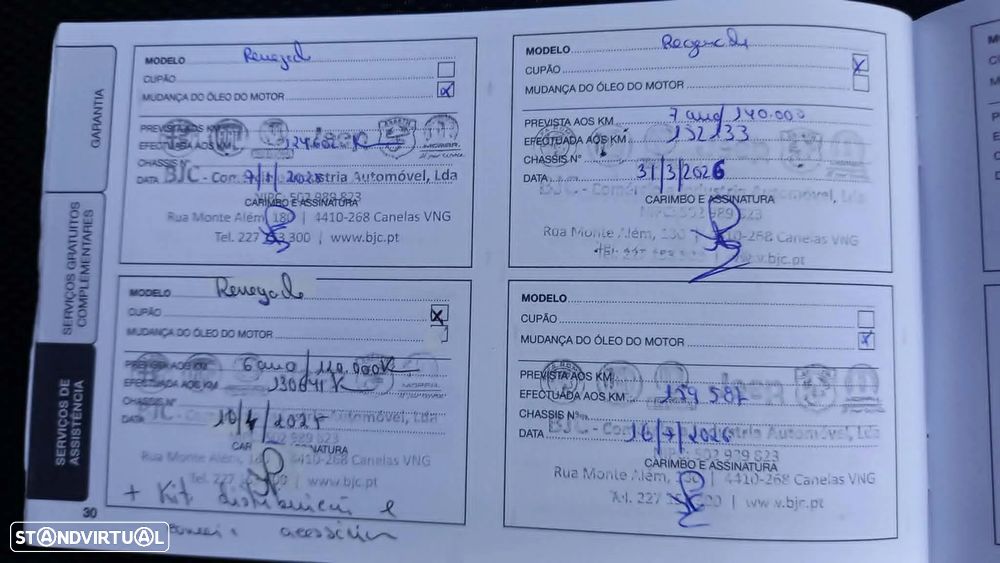 GARANTIA
SERVIÇOS GRATUITOS
COMPLEMENTARES
SERVIÇOS DE
ASSISTÊNCIA
30
MODELO Renegade
CUPÃO
MUDANÇA DO ÓLEO DO MOTOR X
PREVISTA AOS KM
EFECTUADA AOS KM 124.602 K
CHASSIS Nº
DATA
BJC - Comércio e Industria Automóvel, Lda
CARIMBO E ASSINATURA
Rua Monte Além, 180 | 4410-268 Canelas VNG
Tel. 227 300 | www.bjc.pt
MODELO Renegade
CUPÃO X
MUDANÇA DO ÓLEO DO MOTOR
PREVISTA AOS KM 7 ano/140.000
EFECTUADA AOS KM 132133
CHASSIS Nº
DATA 31/3/2026
BJC - Comércio e Industria Automovel, Lda
CARIMBO E ASSINATURA
Rua Monte Além, 4410-268 Canelas VNG
www.bjc.pt
MODELO Renegade
CUPÃO X
MUDANÇA DO ÓLEO DO MOTOR
PREVISTA AOS KM 6 ano/120.000K
EFECTUADA AOS KM 130041 K
CHASSIS Nº
DATA 10/4/2025
Automóvel, Lda
CAR NATURA
Rua Monte Além, 4410-268 Canelas VNG
Tel. 227 300 | www.bjc.pt
+ Kit distribuição e
acessórios
MODELO
CUPÃO
MUDANÇA DO ÓLEO DO MOTOR X
PREVISTA AOS KM
EFECTUADA AOS KM 139 587
CHASSIS Nº
DATA 16/7/2026
BJC - Industria Automóvel, Lda
CARIMBO E ASSINATURA
Rua Monte Além, 180 | 4410-268 Canelas VNG
Tel. 227 300 | www.bjc.pt
STANDVIRTUAL